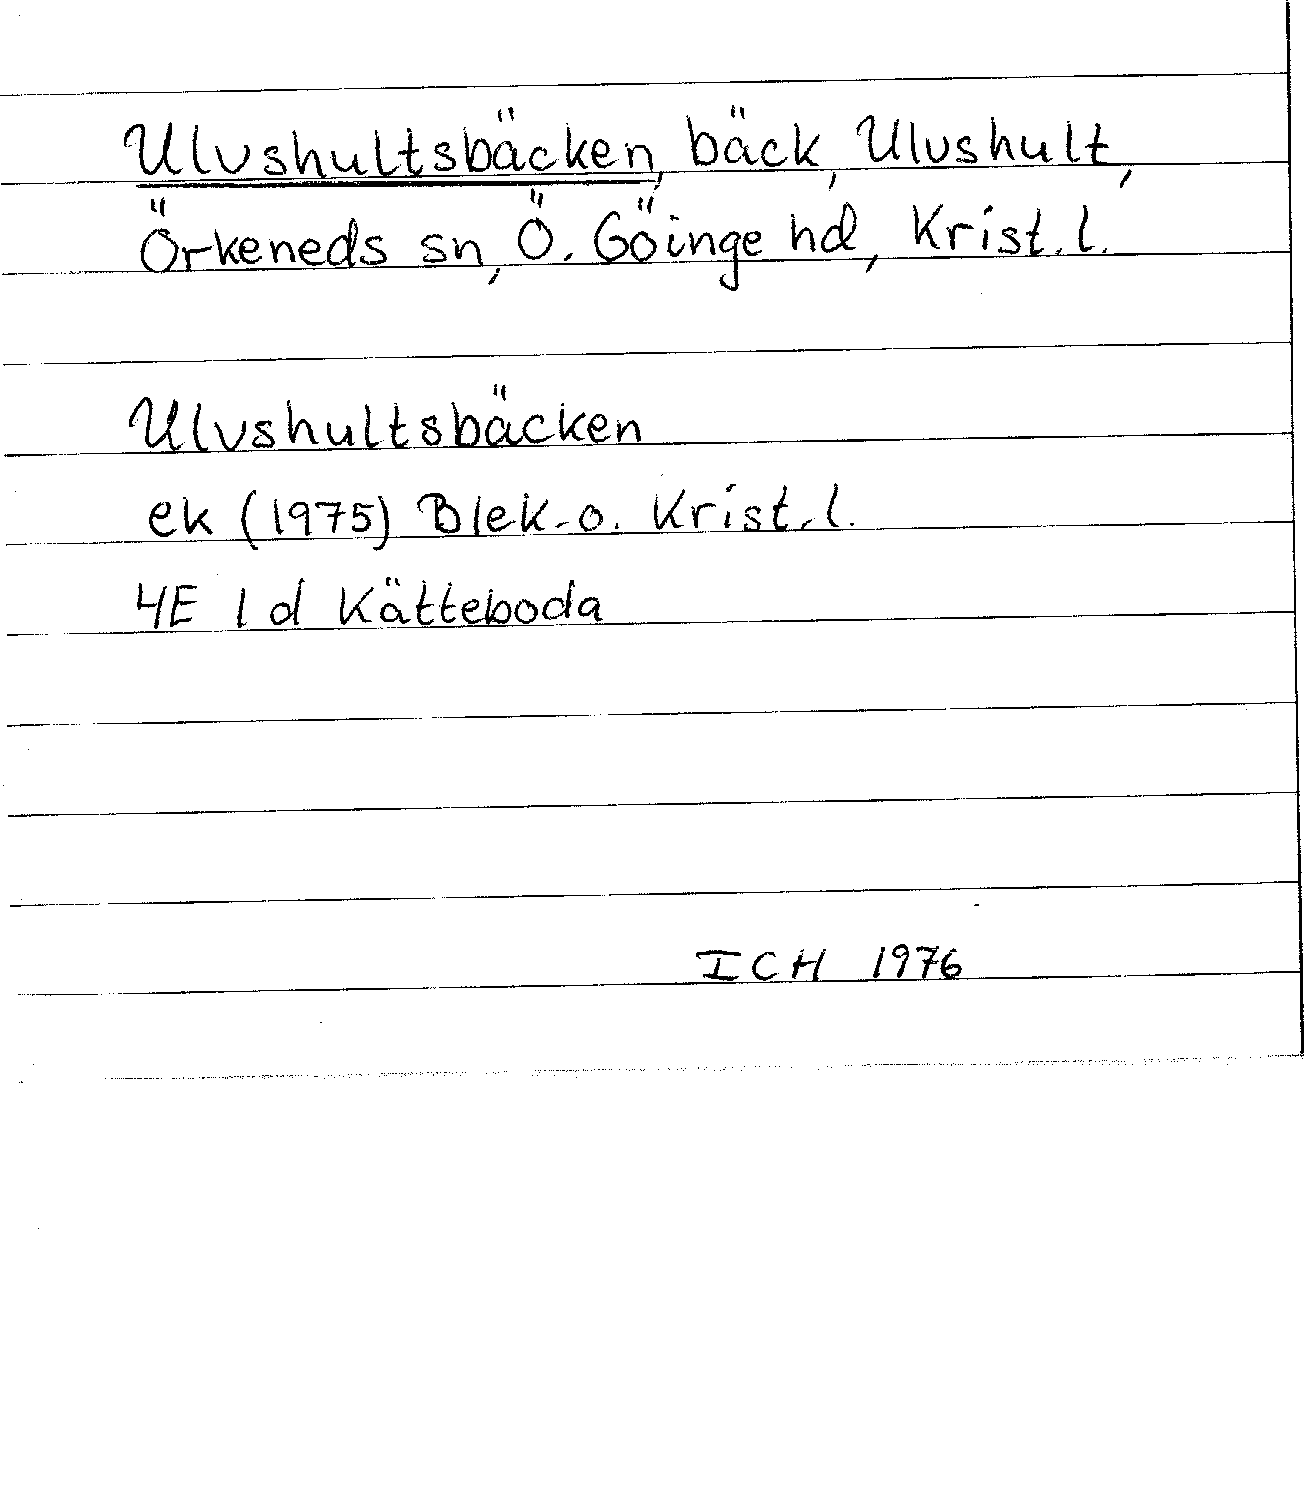 Ulvshultsbäcken, bäck, Ulvshult,
Örkeneds sn, Ö. Göinge hd, Krist. l.
Ulvshultsbäcken
ek (1975) Blek. o. Krist. l.
4E 1d Kätteboda
ICH 1976